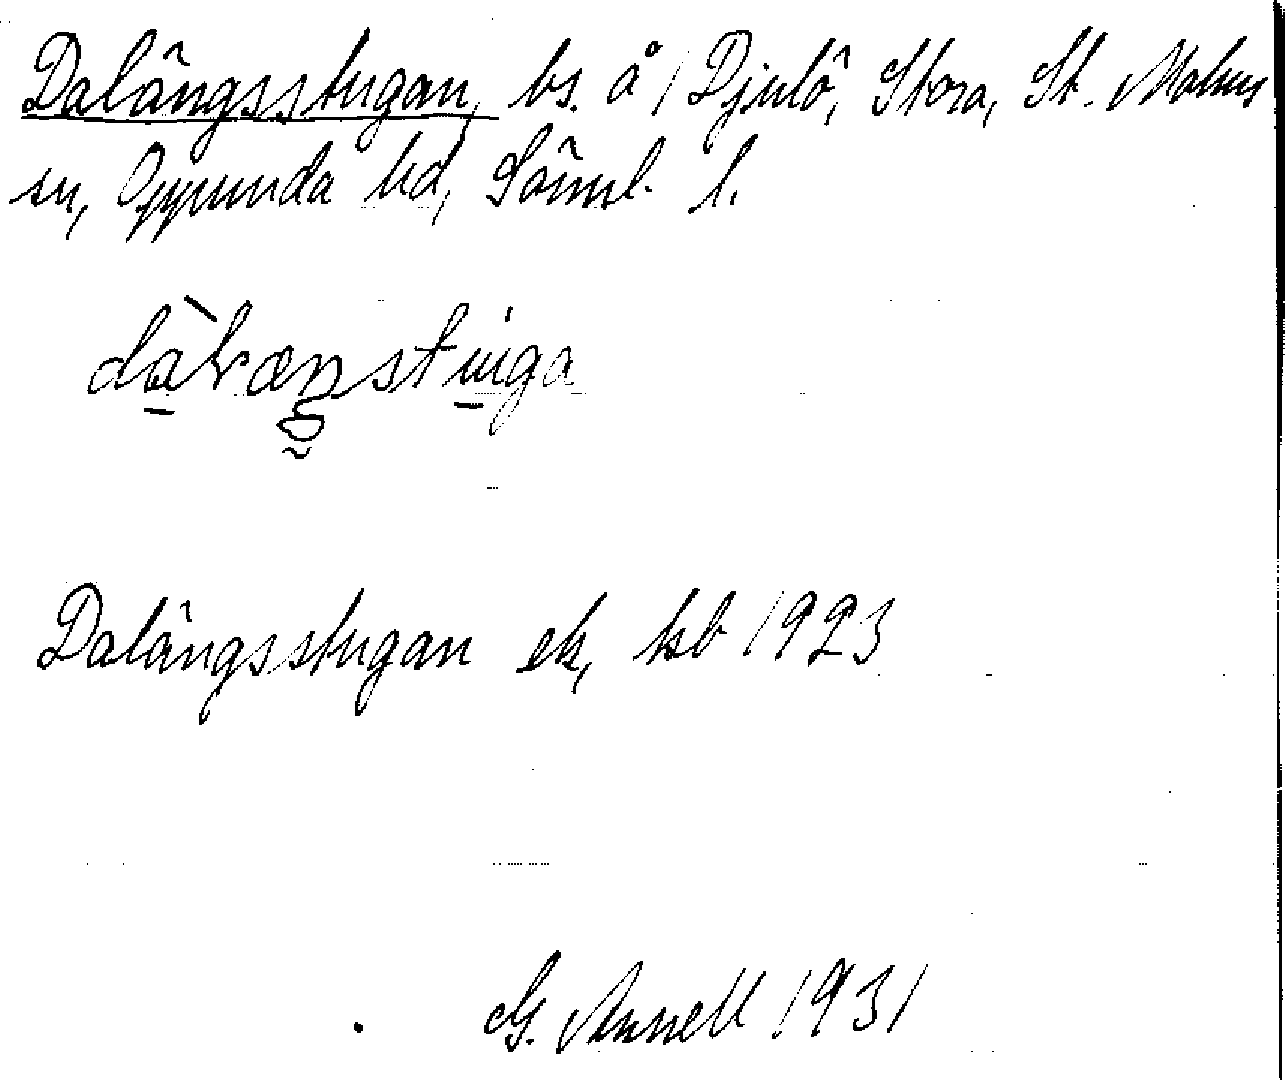 Dalängsstugan, bs. å / Djulö, Stora, St. Malms
sn, Oppunda hd, Söml. l.
Dalängsstugan ek, hsb 1923
G. Annell 1931